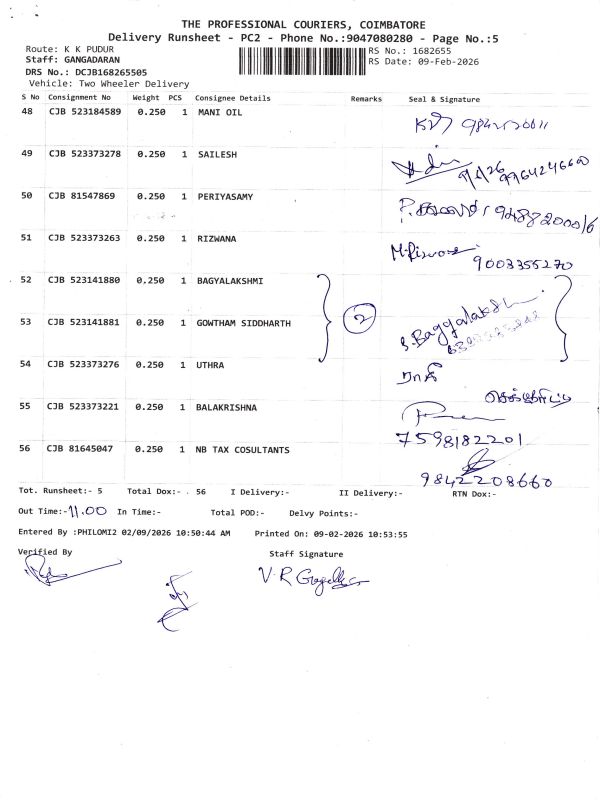 THE PROFESSIONAL COURIERS, COIMBATORE
Delivery Runsheet - PC2 - Phone No.:9047080280 - Page No.:5
Route: K K PUDUR
RS No.: 1682655
Staff: GANGADARAN
RS Date: 09-Feb-2026
DRS No.: DCJB168265505
Vehicle: Two Wheeler Delivery
S No Consignment No Weight PCS Consignee Details Remarks Seal & Signature
48 CJB 523184589 0.250 1 MANI OIL
49 CJB 523373278 0.250 1 SAILESH
50 CJB 81547869 0.250 1 PERIYASAMY
9488200016
51 CJB 523373263 0.250 1 RIZWANA M.Rizwana
9003355270
52 CJB 523141880 0.250 1 BAGYALAKSHMI
2
53 CJB 523141881 0.250 1 GOWTHAM SIDDHARTH
54 CJB 523373276 0.250 1 UTHRA
55 CJB 523373221 0.250 1 BALAKRISHNA
7598182201
56 CJB 81645047 0.250 1 NB TAX COSULTANTS
9842208660
Tot. Runsheet:- 5 Total Dox:- 56 I Delivery:- II Delivery:- RTN Dox:-
Out Time:- 11.00 In Time:- Total POD:- Delvy Points:-
Entered By :PHILOMI2 02/09/2026 10:50:44 AM Printed On: 09-02-2026 10:53:55
Verified By Staff Signature